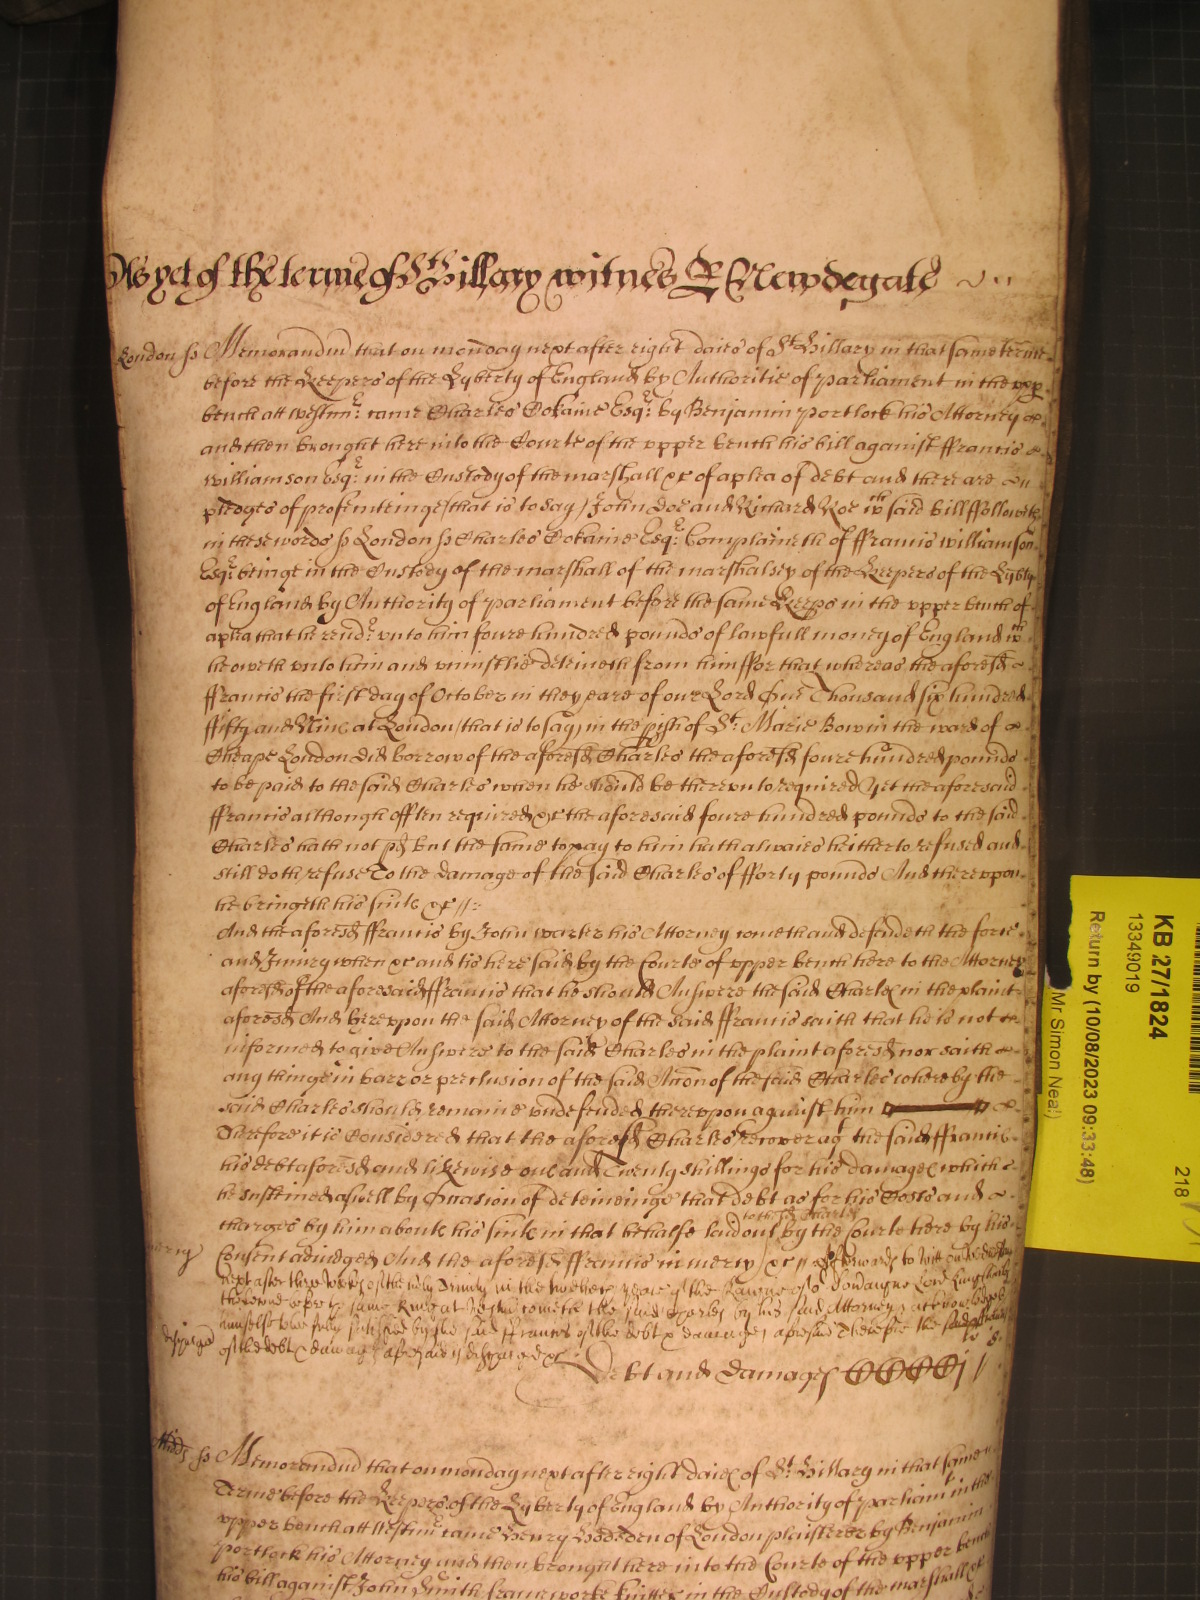 As yet of the terme of St Hillary witnes R Newdegate
London ss Memorandum that on monday next after eight daies of St Hillary in that same terme
before the Keepers of the Lyberty of England by Authoritie of parliament in the vpp
bench att westmr. came Charles Cokaine Esqr. by Benjamin portlock his Attorney &
and then brought here into the Courte of the vpper bench his bill against ffrancis
williamson Esqr. in the Custody of the marshall &c of a plea of debt and there are
pledges of prosecuteinge (that is to say) John Doe and Richard Roe wch said bill ffolloweth
in these words ss London ss Charles Cokaine Esqr. Complaineth of ffrancis williamson
Esqr. beinge in the Custody of the marshall of the marshalsey of the Keepers of the Lyb'ty
of England by Authority of parliament before the same Keep's in the vpper bench of
a plea that he rendr. vnto him foure hundred pounds of lawfull money of England wch
he oweth vnto him and vniustlie deteineth from him ffor that whereas the aforesd
ffrancis the first day of October in the yeare of our Lord One Thousand six hundred
ffifty and Nine at London (that is to say) in the pish of St. Marie Bow in the ward of
Cheape London did borrow of the aforesd Charles the aforesd foure hundred pounds
to be paid to the said Charles when he should be therevnto required Yet the aforesaid
ffrancis although offten required &c the aforesaid foure hundred pounds to the said
Charles hath not pd but the same to pay to him hath alwaies heitherto refused and
still doth refuse To the damage of the said Charles of fforty pounds And therevpon
he bringeth his suite &c //
And the aforesd ffrancis by John warter his Attorney cometh and defendeth the force
and Iniury when &c and tis here said by the Courte of vpper bench here to the Attorney
aforesd of the aforesaid ffrancis that he should Answere the said Charles in the plaint
aforesd And herevpon the said Attorney of the said ffrancis saith that he is not
informed to give Answere to the said Charles in the plaint aforesd nor saith
any thinge in barr or preclusion of the said Accon of the said Charles whereby the
said Charles should remaine vndefended therevpon against him
Therefore it is Considered that the aforesd Charles recover agt the said ffrancis
his debt aforesd and likewise one and Twenty shillings for his damages which
he susteined aswell by Occasion of deteineinge that debt as for his Costs and
charges by him about his suite in that behalfe laid out by the Courte here by his
to the sd Charles
mercy Consent adiudged And the aforesd ffrancis in mercy &c // afterwards to witt on
next after three weekes of the holy Trinity in the yeare of the Raigne of or Soveraigne Lord Kinge
before the same Kinge at cometh the said Charles by his said Attorney & acknowledgeth
himselfe to be fully satisfied by the said ffrancis of the debt & damages aforesaid Therefore the said ffrancis
discharged of the debt & damages aforesaid is discharged &c
Debt and damages CCCCj
Midds ss Memorandum that on monday next after eight daies of St. Hillary in that same
Terme before the Keepers of the Lyberty of England by Authority of parliamt in the
vpper bench att westmr. came Henry of London plaisterer by Benjamin
portlock his Attorney and then brought here into the Courte of the vpper bench
his bill against John Smith frameworke knitter in the Custody of the marshall &c
KB 27/1824
13349019
Return by (10/08/2023 09:33:48)
Mr Simon Neal)
218